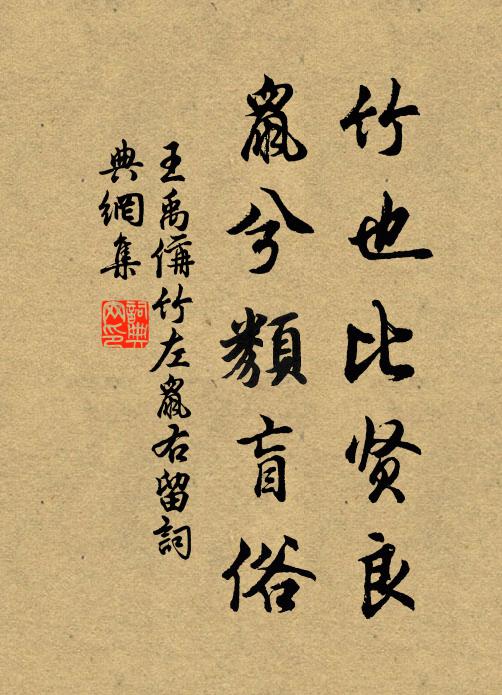 竹也比贤良
鼠兮類盲俗
王禹偁竹左鼠右留詞
典網集
詞典
网印